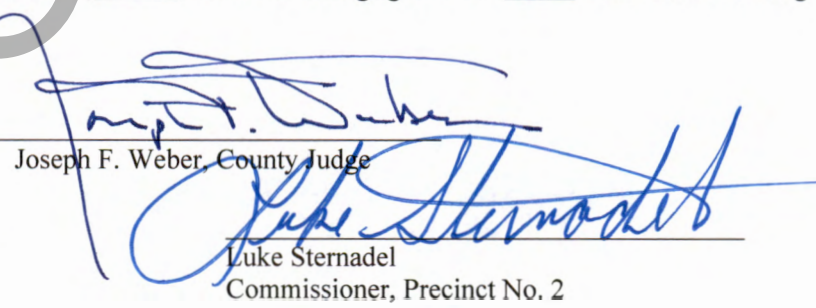 Joseph F. Weber
Joseph F. Weber, County Judge
Luke Sternadel
Luke Sternadel
Commissioner, Precinct No. 2